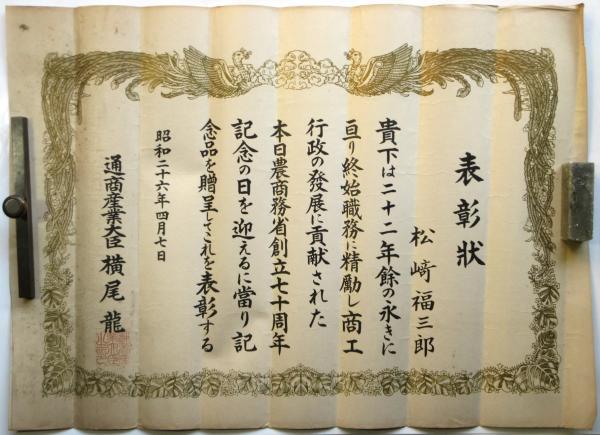 表彰状
松﨑福三郎
貴下は二十二年餘の永きに
亘り終始職務に精勵し商工
行政の發展に貢献された
本日農商務省創立七十周年
記念の日を迎えるに當り記
念品を贈呈してこれを表彰する
昭和二十六年四月七日
通商産業大臣横尾龍